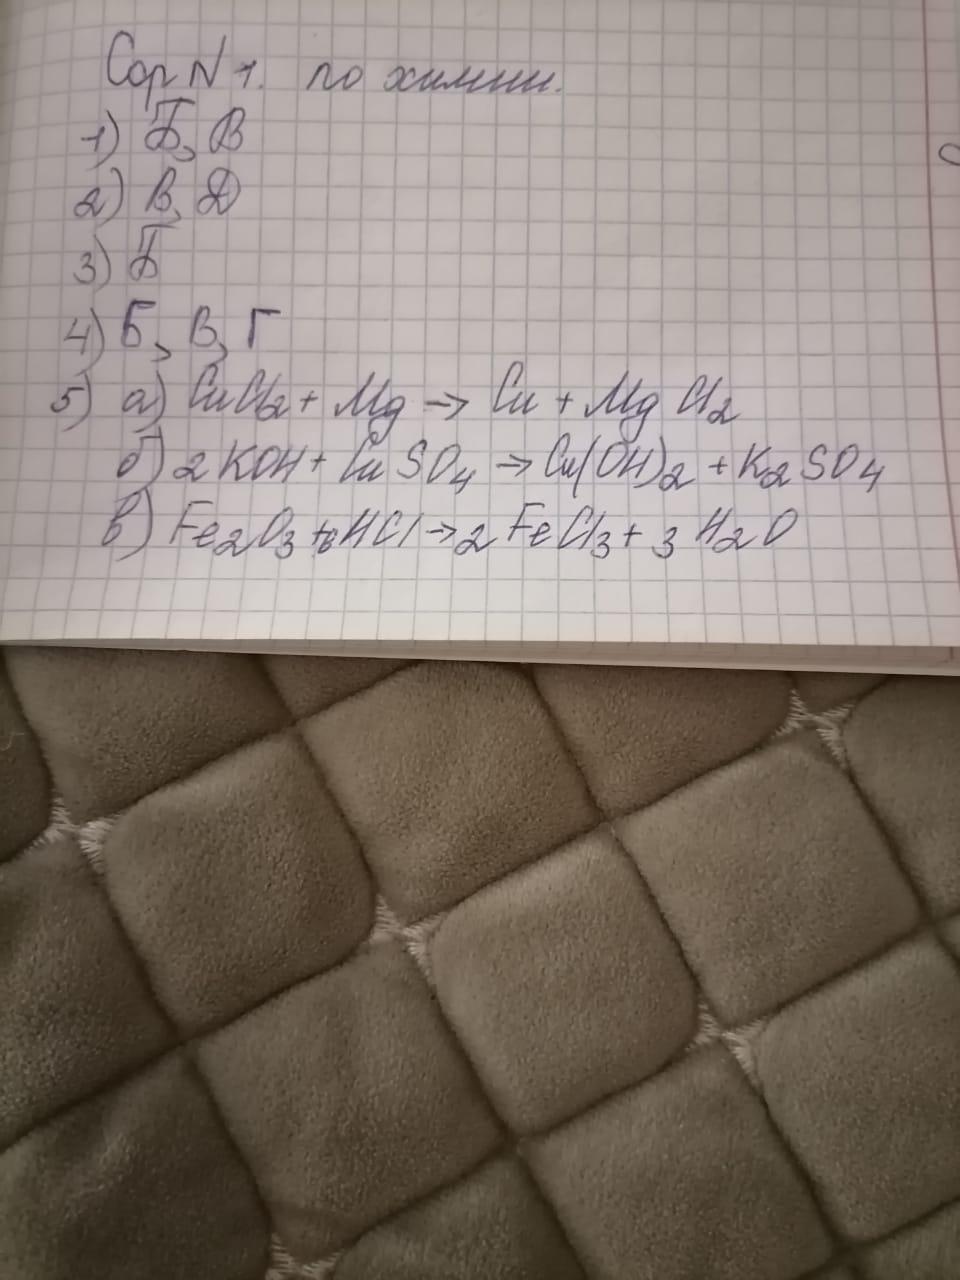 Сор N 1. по химии.
1) Б, В
2) В, Д
3) Б
4) Б, В, Г
5) а) CuCl2 + Mg → Cu + MgCl2
б) 2KOH + CuSO4 → Cu(OH)2 + K2SO4
в) Fe2O3 + 6HCl → 2FeCl3 + 3H2O